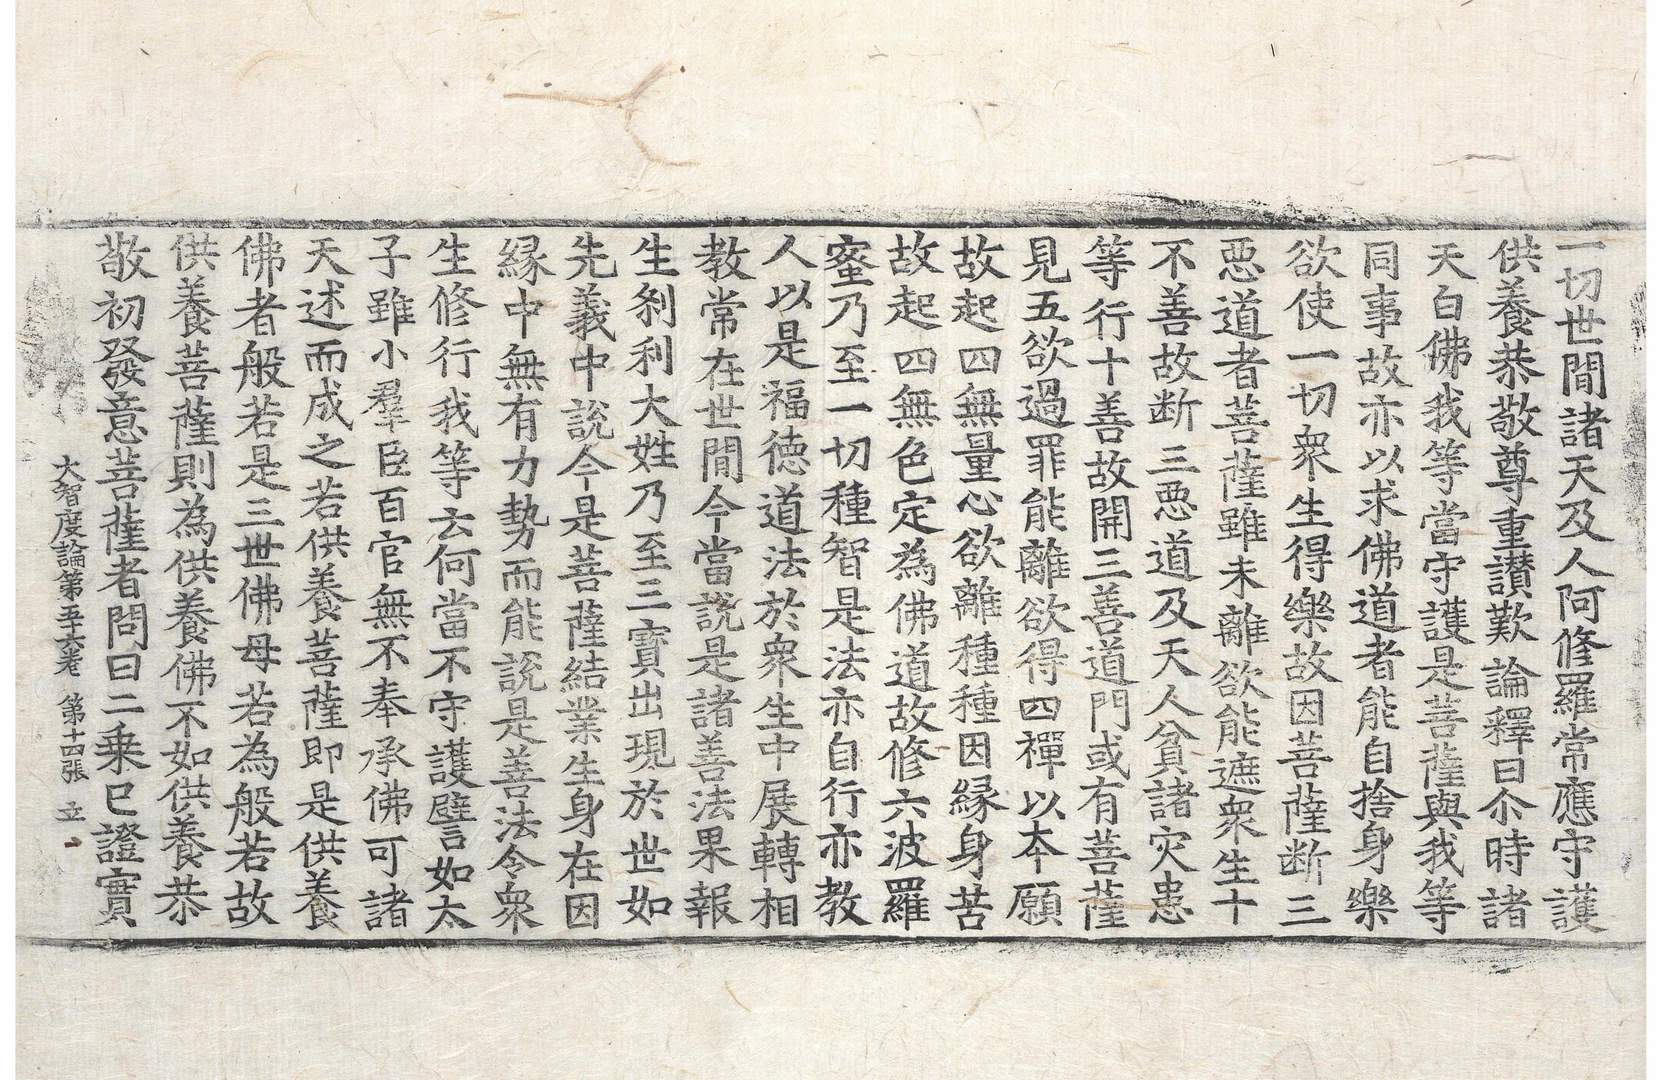 一切世間諸天及人阿修羅常應守護
供養恭敬尊重讃歎論釋曰尒時諸
天白佛我等當守護是菩薩與我等
同事故亦以求佛道者能自捨身樂
欲使一切衆生得樂故因菩薩断三
惡道者菩薩雖未離欲能遮衆生十
不善故断三惡道及天人貧諸灾患
等行十善故開三善道門或有菩薩
見五欲過罪能離欲得四禪以本願
故起四無量心欲離種種因緣身苦
故起四無色定為佛道故修六波羅
蜜乃至一切種智是法亦自行亦教
人以是福德道法於衆生中展轉相
教常在世間今當說是諸善法果報
生刹利大姓乃至三寶出現於世如
先義中說今是菩薩結業生身在因
緣中無有力勢而能說是善法令衆
生修行我等云何當不守護譬如太
子雖小羣臣百官無不奉承佛可諸
天述而成之若供養菩薩即是供養
佛者般若是三世佛母若為般若故
供養菩薩則為供養佛不如供養恭
敬初發意菩薩者問曰二乘已證實
大智度論第五十六卷 第十四張 立